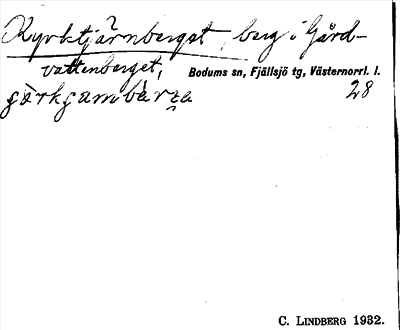 Kyrktjärnberget, berg i Gård-
vattenberget,
Bodums sn, Fjällsjö tg, Västernorrl. l.
28
C. LINDBERG 1932.